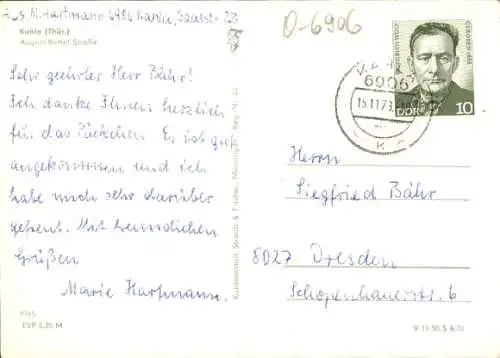 M. Hartmann 6906 Kahla, Saalstr. 23
Kahla (Thür.)
August-Bebel-Straße
Sehr geehrter Herr Bähr!
Ich danke Ihnen herzlich
für das Päckchen. Es ist gut
angekommen und ich
habe mich sehr darüber
gefreut. Mit freundlichen
Grüßen
Marie Hartmann.
EVP 0,20 M
Kunstanstalt Straub & Fischer, Meiningen
O-6906
6906
15.11.73
K
DDR
10
Herrn
Siegfried Bähr
8027 Dresden
Schopenhauerstr. 6
V 11 50 S 4/73